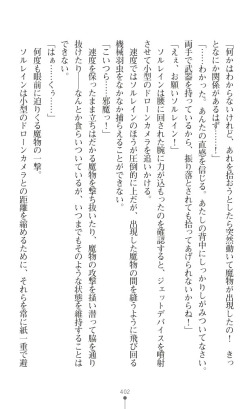 「何かはわからないけれど、あれを拾おうとしたら突然動いて魔物が出現したの！　きっ
となにか関係があるはず」
「……わかった。あんたの直感を信じる。あたしの背中にしっかりしがみついてなさい。
両手で武器を持っているから、振り落とされても拾ってあげられないからね！」
「ええ、お願いソルレイン！」
ソルレインは腰に回された腕に力が込もったのを確認すると、ジェットデバイスを噴射
させて小型のドローンカメラを追いかける。
速度ではソルレインのほうが圧倒的に上だが、出現した魔物の間を縫うように飛び回る
機械羽虫をなかなか捕らえることができない。
「こいつら……邪魔っ！」
速度を保ったまま立ちはだかる魔物を撃ち抜いたり、魔物の攻撃を掻い潜って脇を通り
抜けたり、なんとか食らいついているが、いつまでもそのような状態を維持することは
できない。
「はぁ……くぅ……」
何度も眼前に迫りくる魔物の一撃。
ソルレインは小型のドローンカメラとの距離を縮めるために、それらを常に紙一重で避
402